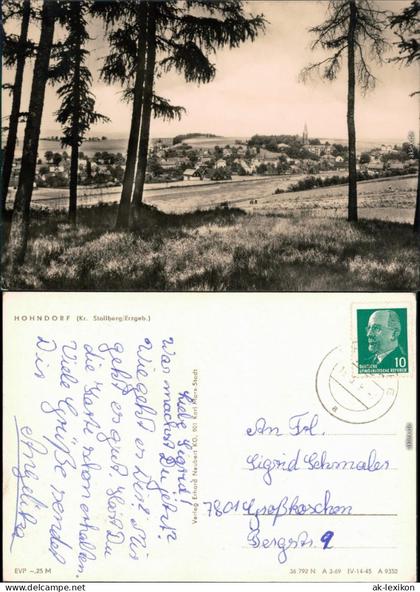 HOHNDORF (Kr. Stollberg/Erzgeb.)
Liebe Sigrid!
Was machst Du jetzt?
Wie geht es Dir? Mir
geht es gut. Hast Du
die Karte schon erhalten.
Viele Grüße sendet
Dir
Angelika
EVP –,25 M
Verlag Erhard Neubert KG, 901 Karl-Marx-Stadt
10
DEUTSCHE
DEMOKRATISCHE REPUBLIK
An Frl.
Sigrid Schmaler
7801 Großkoschen
Bergstr. 2
36 792 N A 3-69 IV-14-45 A 9350
www.ak-ansichtskarten.de / www.ak-lexikon.de